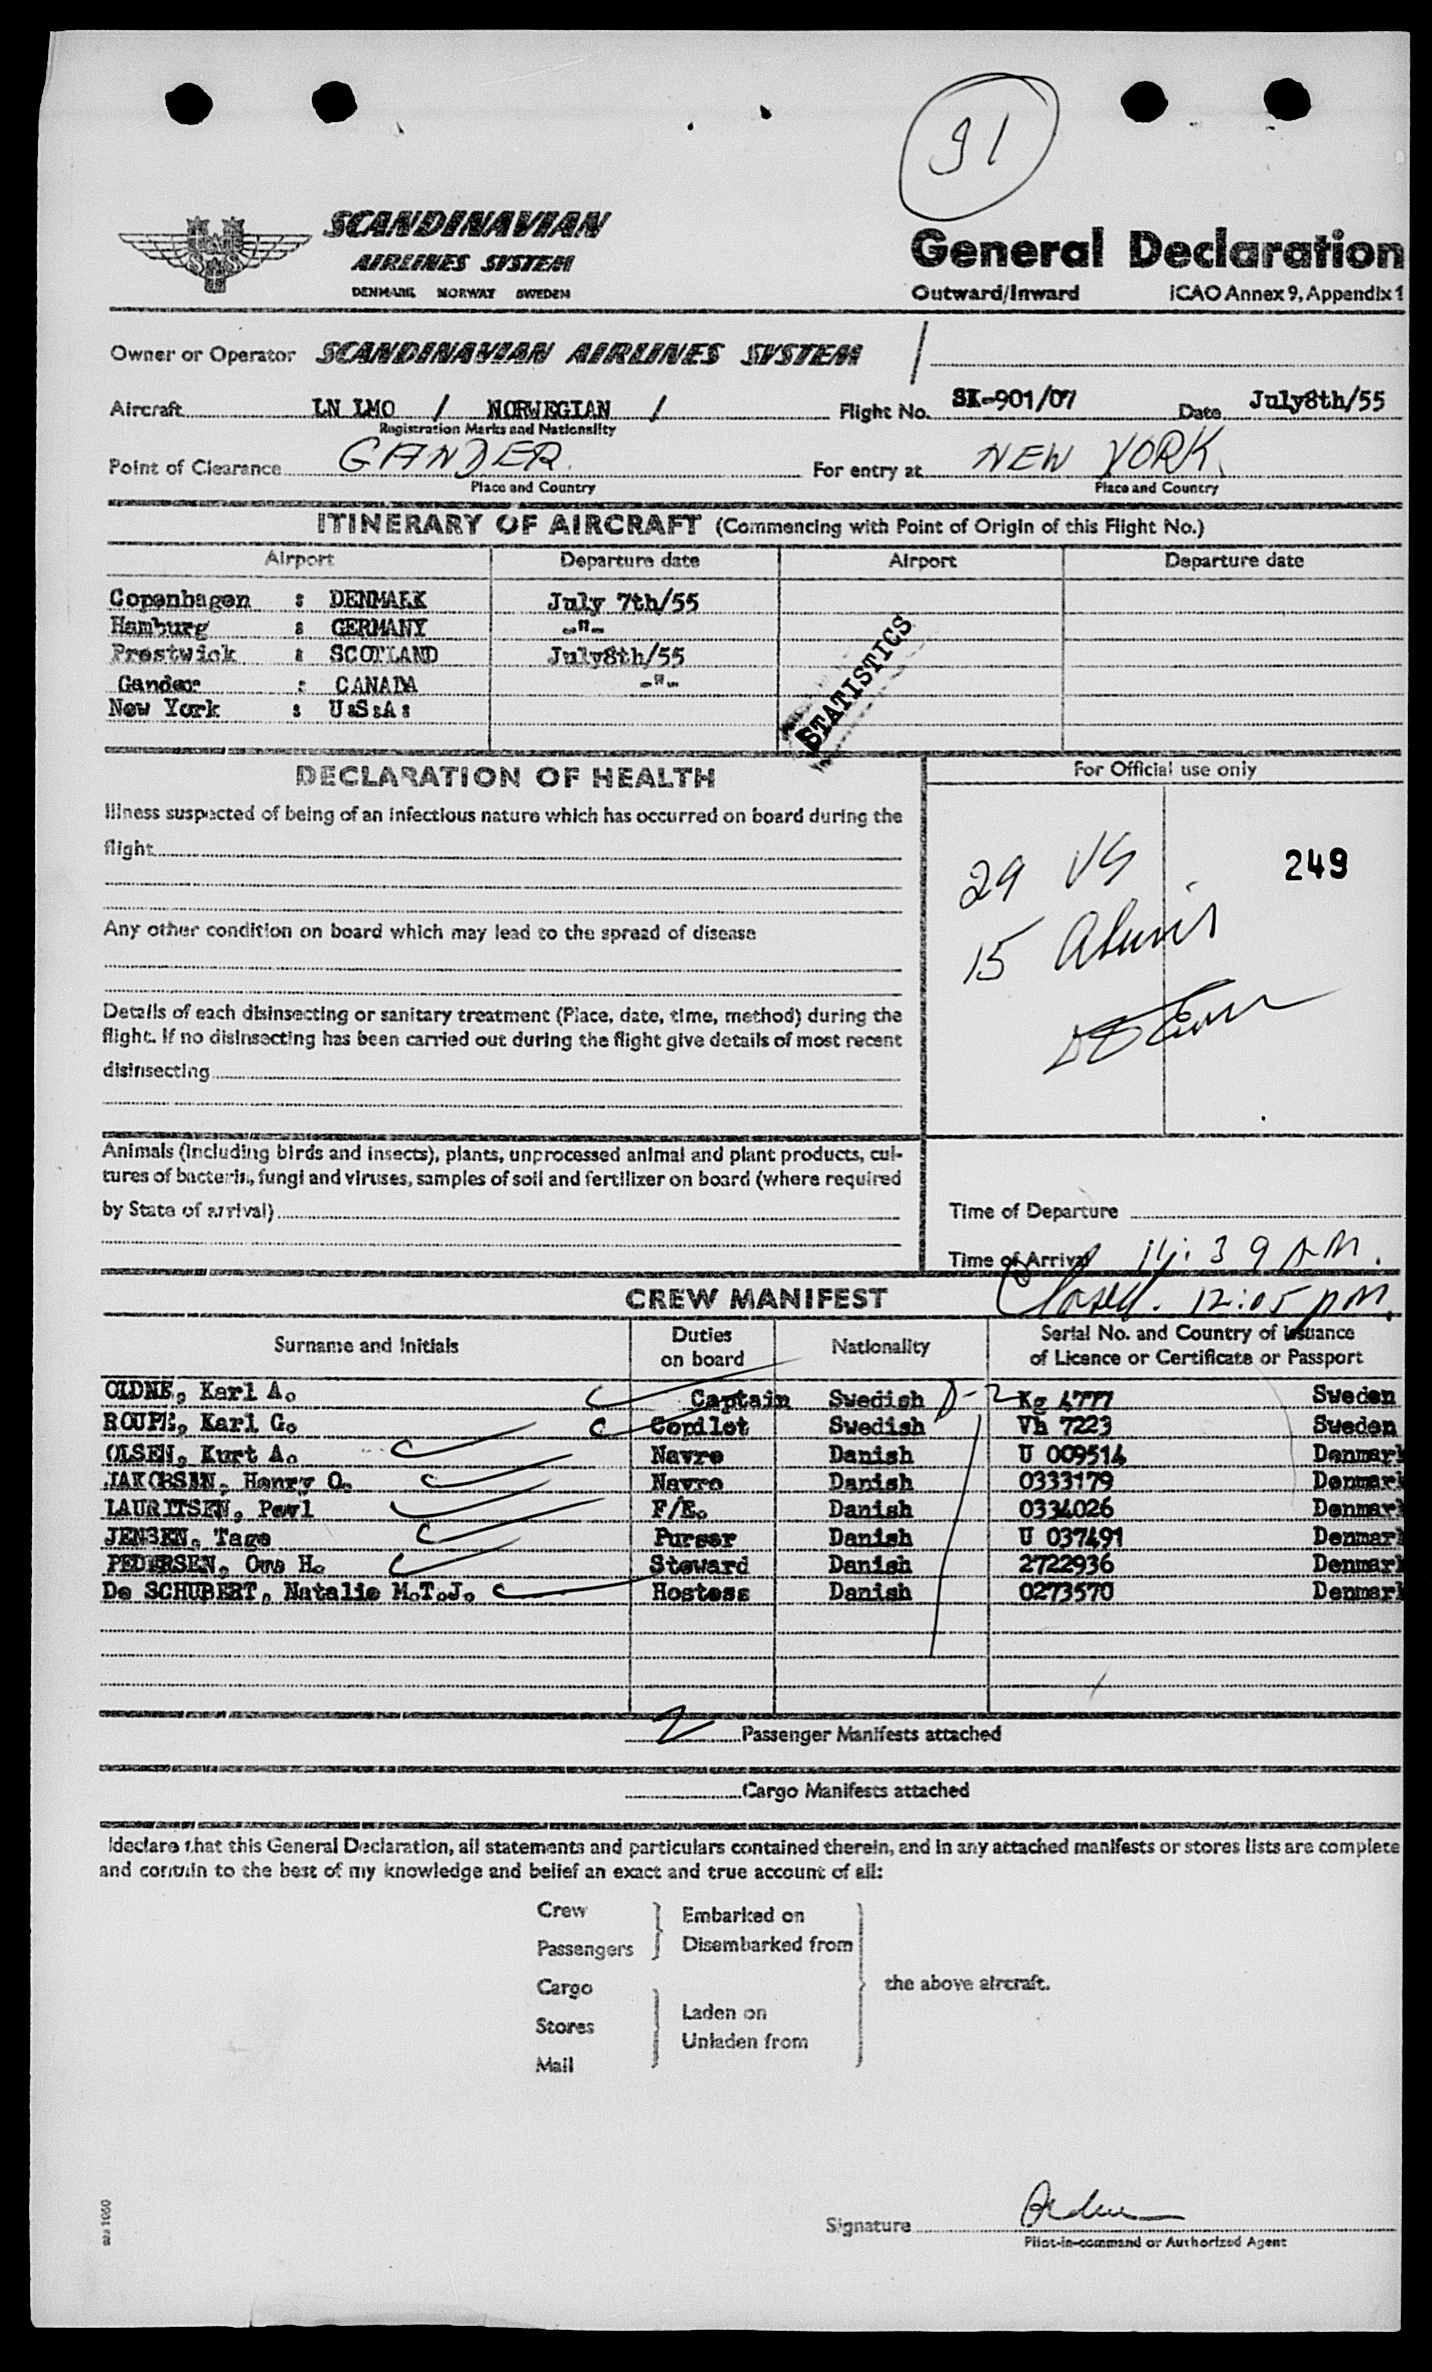 91
SCANDINAVIAN
AIRLINES SYSTEM
DENMARK NORWAY SWEDEN
General Declaration
Outward/Inward ICAO Annex 9, Appendix 1
Owner or Operator SCANDINAVIAN AIRLINES SYSTEM /
Aircraft LN LMO / NORWEGIAN / Flight No. SK-901/07 Date July8th/55
Registration Marks and Nationality
Point of Clearance GANDER For entry at NEW YORK
Place and Country Place and Country
ITINERARY OF AIRCRAFT (Commencing with Point of Origin of this Flight No.)
Airport Departure date Airport Departure date
Copenhagen : DENMARK July 7th/55
Hamburg : GERMANY -"-
Prestwick : SCOTLAND July8th/55
Gander : CANADA -"-
New York : U:S:A:
STATISTICS
DECLARATION OF HEALTH
For Official use only
Illness suspected of being of an infectious nature which has occurred on board during the
flight
29 US
249
15 Aliens
Any other condition on board which may lead to the spread of disease
Details of each disinsecting or sanitary treatment (Place, date, time, method) during the
flight. If no disinsecting has been carried out during the flight give details of most recent
disinsecting
Animals (including birds and insects), plants, unprocessed animal and plant products, cul-
tures of bacteria, fungi and viruses, samples of soil and fertilizer on board (where required
by State of arrival)
Time of Departure
Time of Arrival 11:39 AM.
Closed. 12:05 PM.
CREW MANIFEST
Surname and Initials Duties on board Nationality Serial No. and Country of Issuance of Licence or Certificate or Passport
OLDNE, Karl A. Captain Swedish D-2 Kg 4777 Sweden
ROUPE, Karl G. Copilot Swedish Vh 7223 Sweden
OLSEN, Kurt A. Navro Danish U 009514 Denmark
JAKOBSEN, Henry O. Navro Danish 0333179 Denmark
LAURITSEN, Povl F/E. Danish 0334026 Denmark
JENSEN, Tage Purser Danish U 037491 Denmark
PEDERSEN, Ove H. Steward Danish 2722936 Denmark
De SCHUBERT, Natalie M.T.J. Hostess Danish 0273570 Denmark
2 Passenger Manifests attached
Cargo Manifests attached
I declare that this General Declaration, all statements and particulars contained therein, and in any attached manifests or stores lists are complete
and contain to the best of my knowledge and belief an exact and true account of all:
Crew
Passengers
Embarked on
Disembarked from
Cargo
Stores
Mail
Laden on
Unladen from
the above aircraft.
Signature
Pilot-in-command or Authorized Agent